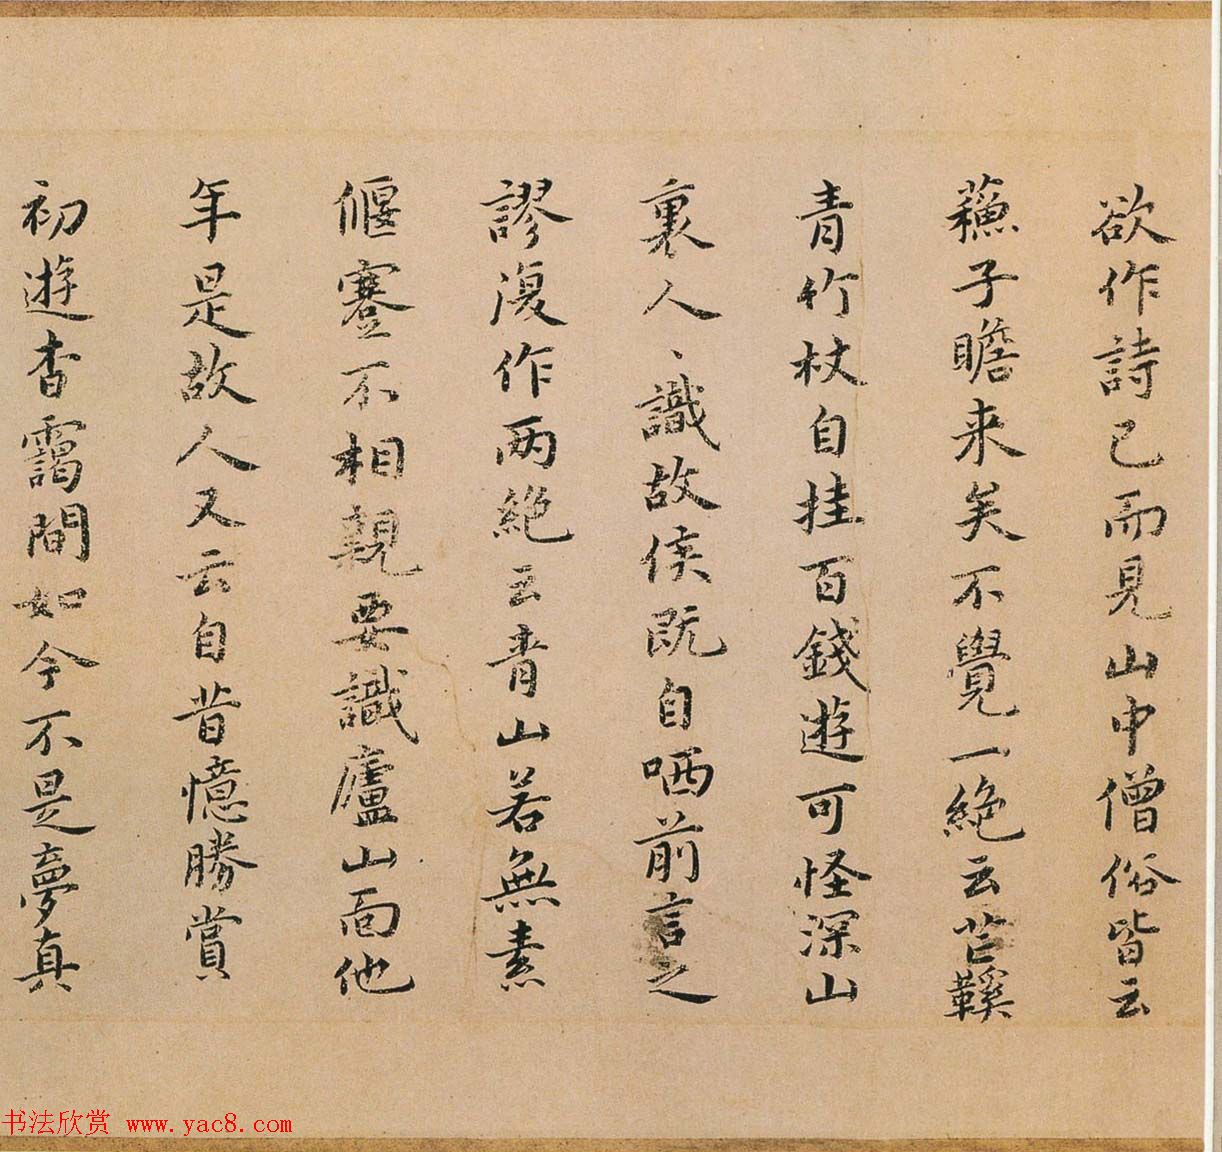 欲作詩已而見山中僧俗皆云
蘓子瞻来矣不覺一絶云芒鞵
青竹杖自挂百錢遊可怪深山
裏人、識故侯既自哂前言之
謬復作两絶云青山若無素
偃蹇不相親要識廬山面他
年是故人又云自昔憶勝賞
初遊杳靄間如今不是夢真
书法欣赏 www.yac8.com